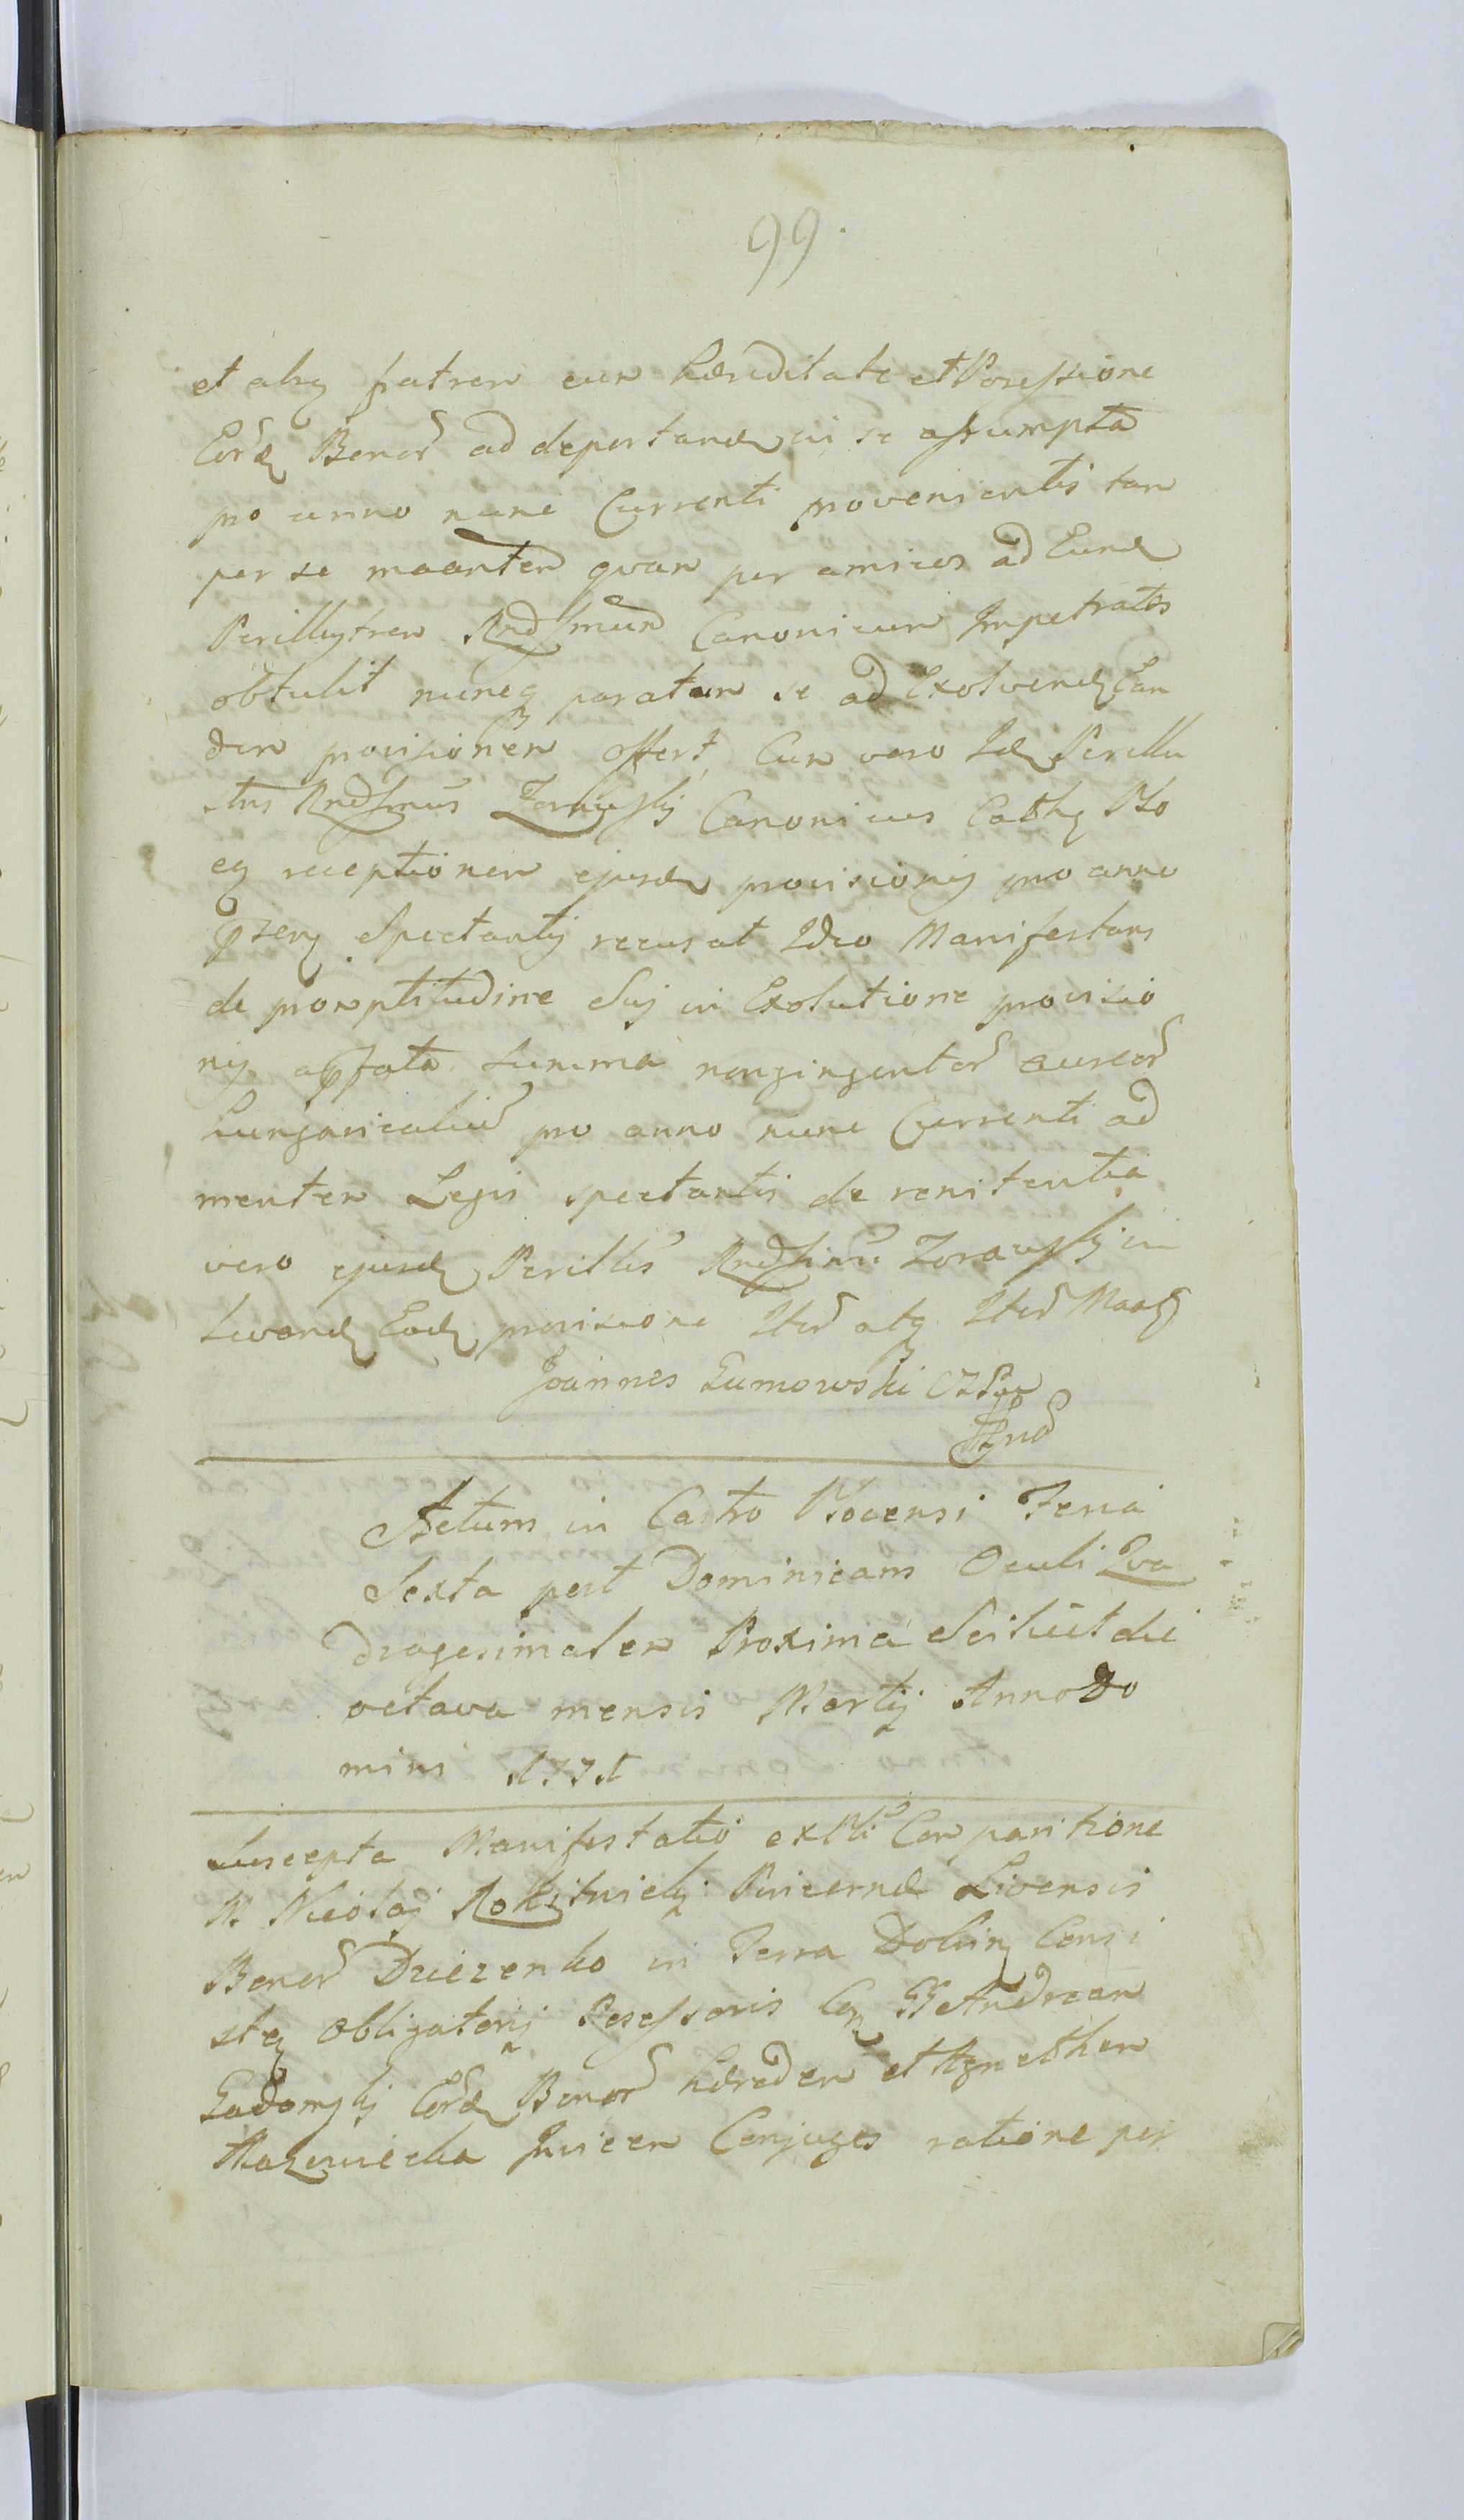 99.
et alng fratrem cum hæreditate et Possessione
Eord Bonor ad deportand in se assumpta
pro anno nunc Currenti provenientis tam
per se maanter qvam per amicos ad Eund
Perillustrem Rndssmum Canonicum Impetratos
obtulit nuncq paratum se ad Exolvend Ean
dem provisionem offert, Cum vero Id Perillu
stris Rndssmus Zorawskj Canonicus Cathg Plo
cg receptionem ejusd provisionis pro anno
pzeng Spectantis recusat Ideo Manifestans
de promptitudine Suj in Exolutione provisio
nis a pfata Summa nongingentor aureor
hungaricaliu pro anno nunc Currenti ad
mentem Legis spectantis de renitentia
vero ejusd Perillis Rndssimi Zorawskj in
levand Ead provisione Iter atq Iter Maatr
Joannes Gumowski
Actum in Castro Plocensi Feria
Sexta post Dominicam Oculi Qva
dragesimalem Proxima Scilicet die
octava mensis Martij Anno Do
mini 1771
Suscepta Manifestatio ex Pli Comparitione
M Nicolaj Rokitnickj Pincernæ Livensis
Bonor Dziezenko in Terra Dobrin Consi
steg Obligatorij Possessoris Con GG Andream
Gadomskj Eord Bonor hæredem et Agnethem
Mazowiecka Invicem Conjuges ratione per